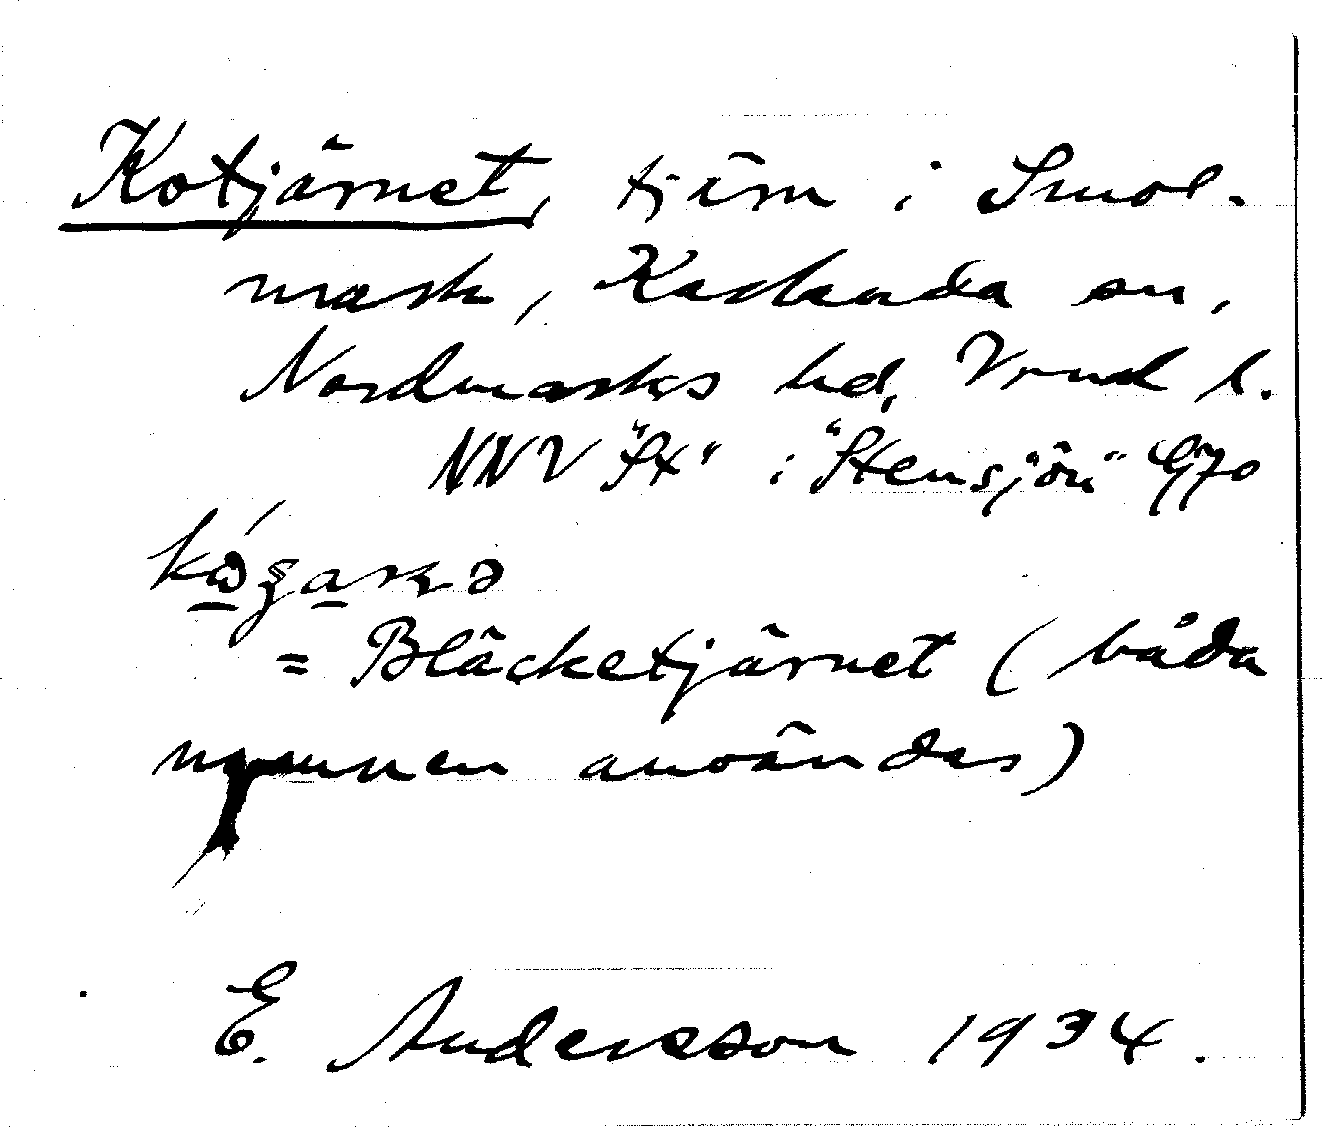 Kotjärnet, tjärn i Smol-
mark, Karlanda sn,
Nordmarks hd, Vrml l.
NNV "St" i "Stensjön" G70
= Bläcketjärnet (båda
namnen användas)
E. Andersson 1934.